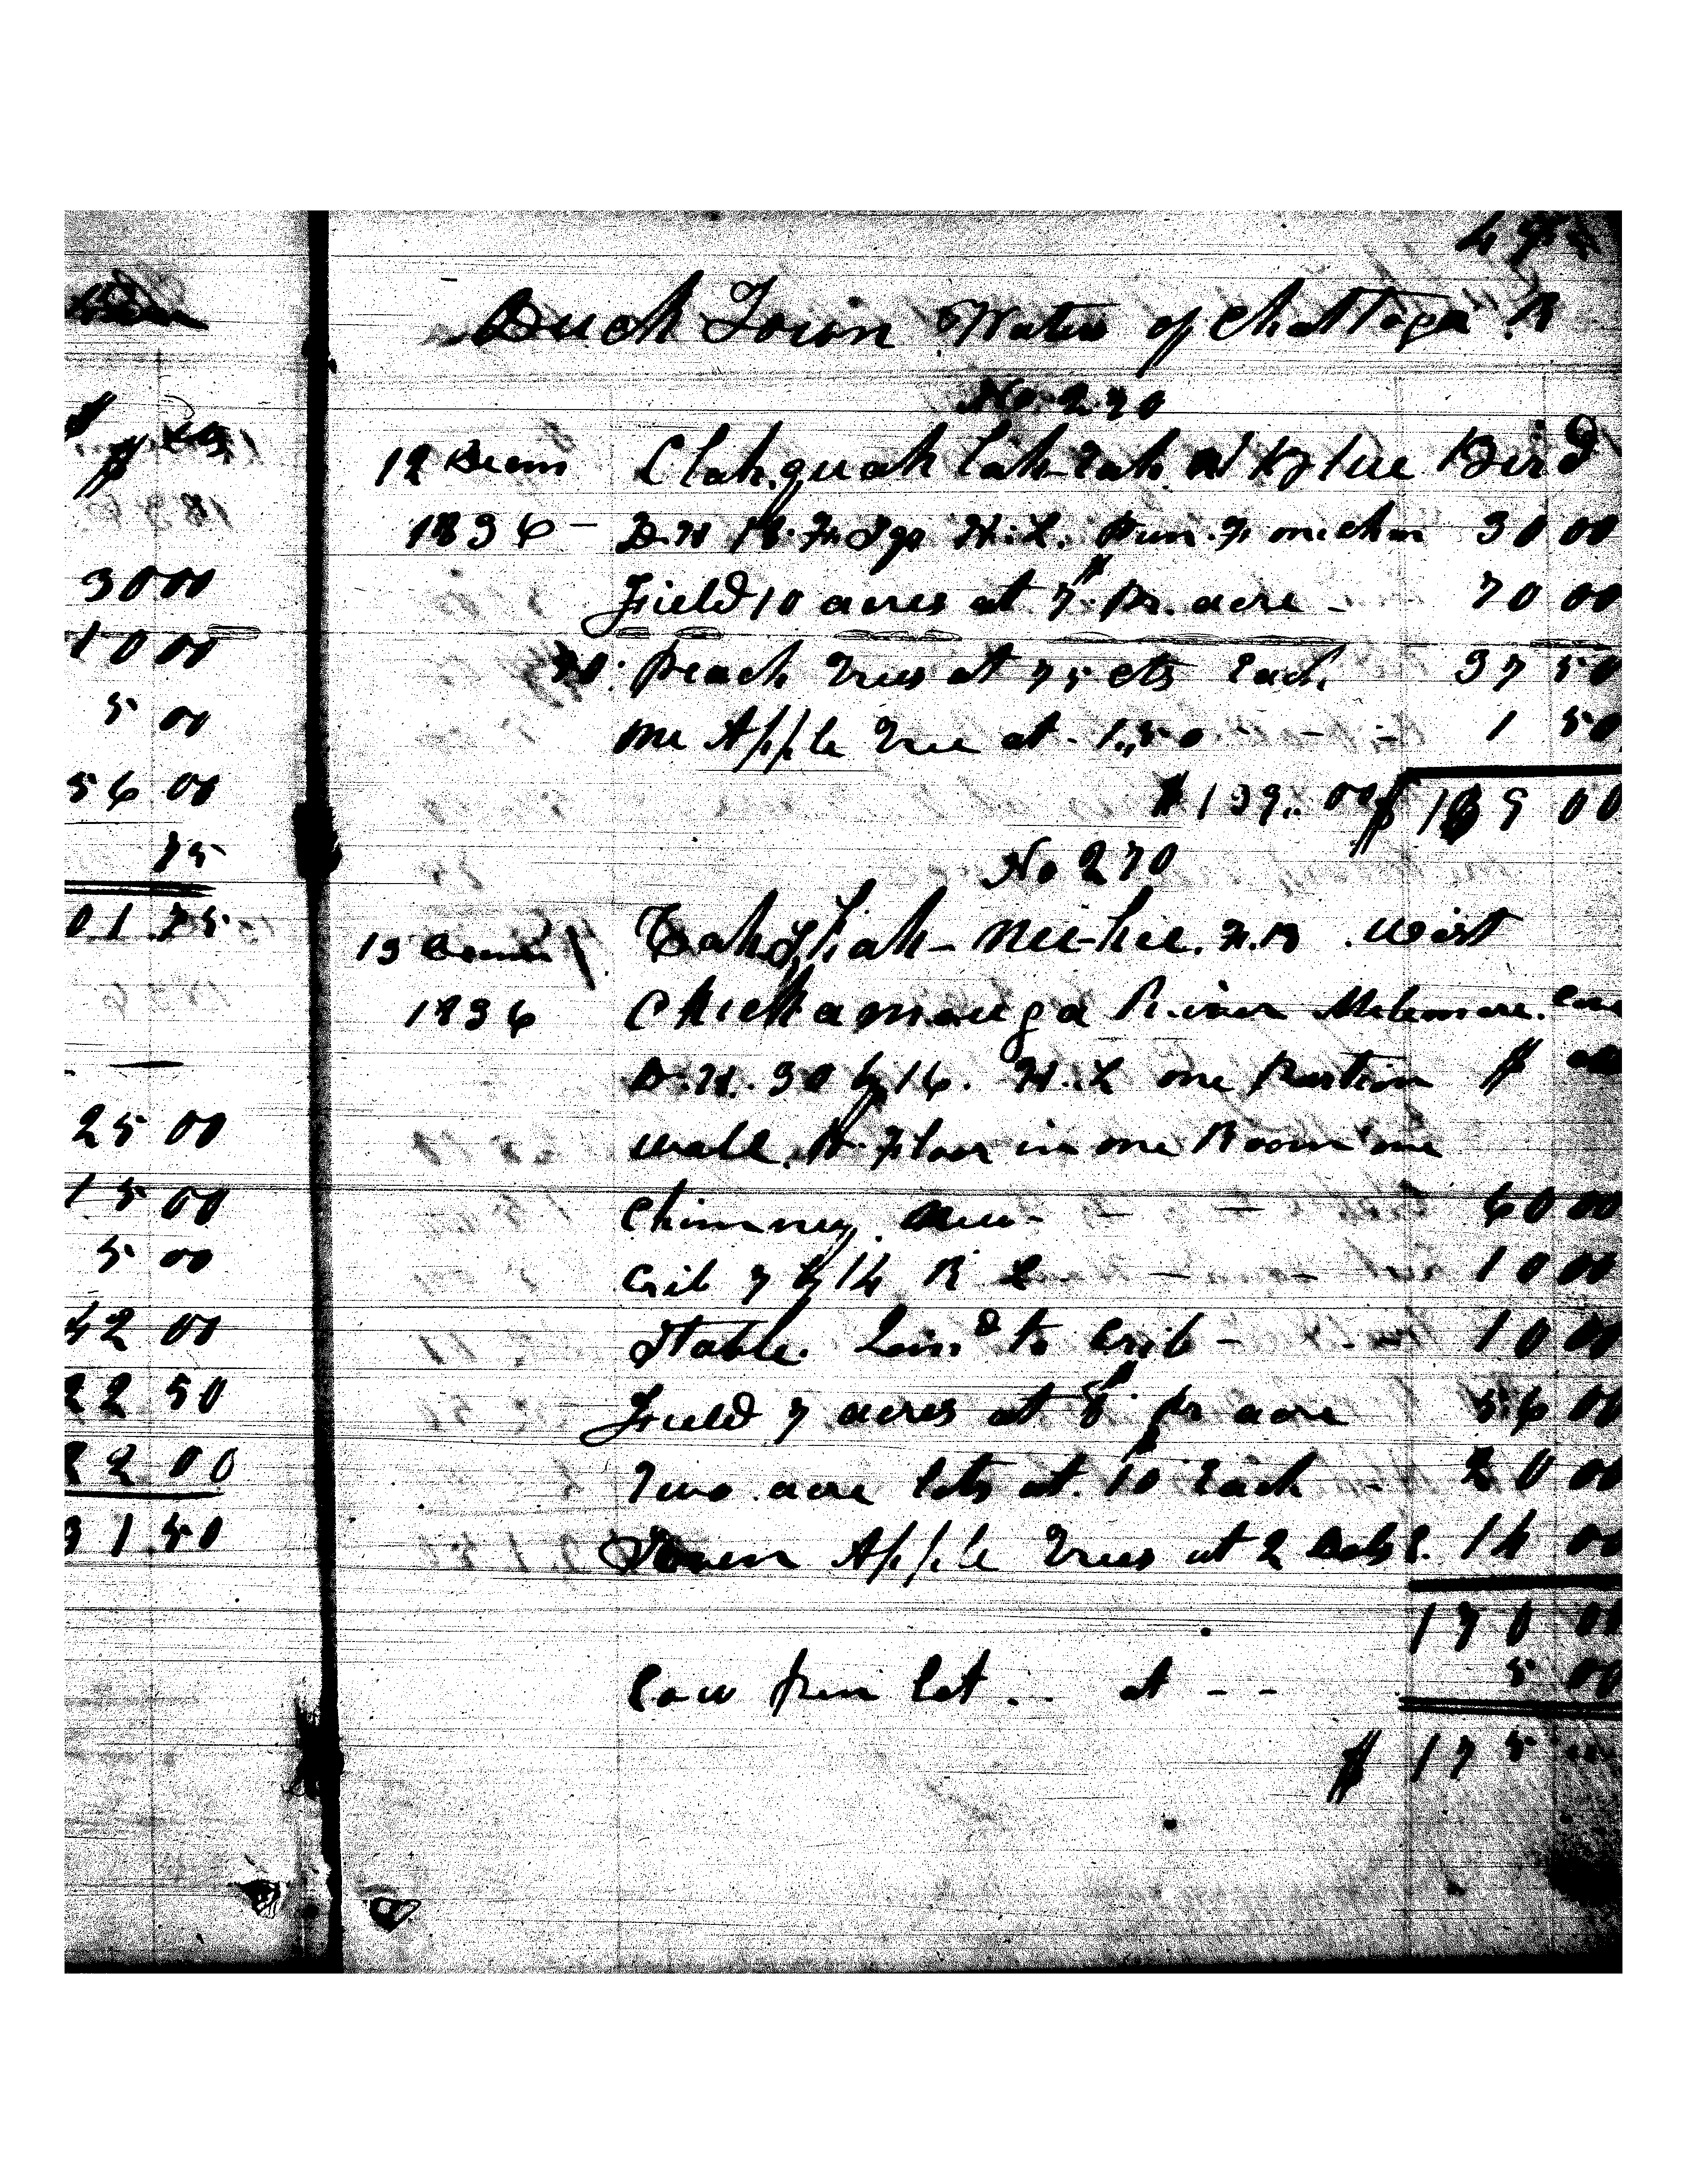 Buck Town Waters of Chattoga R
No. 270
12 Decem Clah.quah lah-tah Blue Bird
1836 – D.H 18. H.L. Pun. Fr one chm 30 00
Field 10 acres at 7$ pr. acre - 70 00
Peach Trees at 75 cts Each 37 50
one Apple Tree at - 1.,50 - - - 1 50
$ 139.. 00 $ 139 00
No 270
13 Decem Nee-hee. F.B. West
1836 Chickamauga River
D.H. 30 by 16. H.L one Partion $
wall. P. Floor in one Room one
Chimney. - - - 60 00
Crib 7 by 14 R L - - 10 00
Stable. Join^d to Crib - 10 00
Field 7 acres at 8$ pr acre 56 00
Two acre lots at 10$ Each - 20 00
Seven Apple Trees at 2 Dols 14 00
170 00
Cow pen lot .. at - - 5 00
$ 175
30 00
10 00
5 00
56 00
75
01.75
25 00
15 00
5 00
42 00
22 50
22 00
31.50